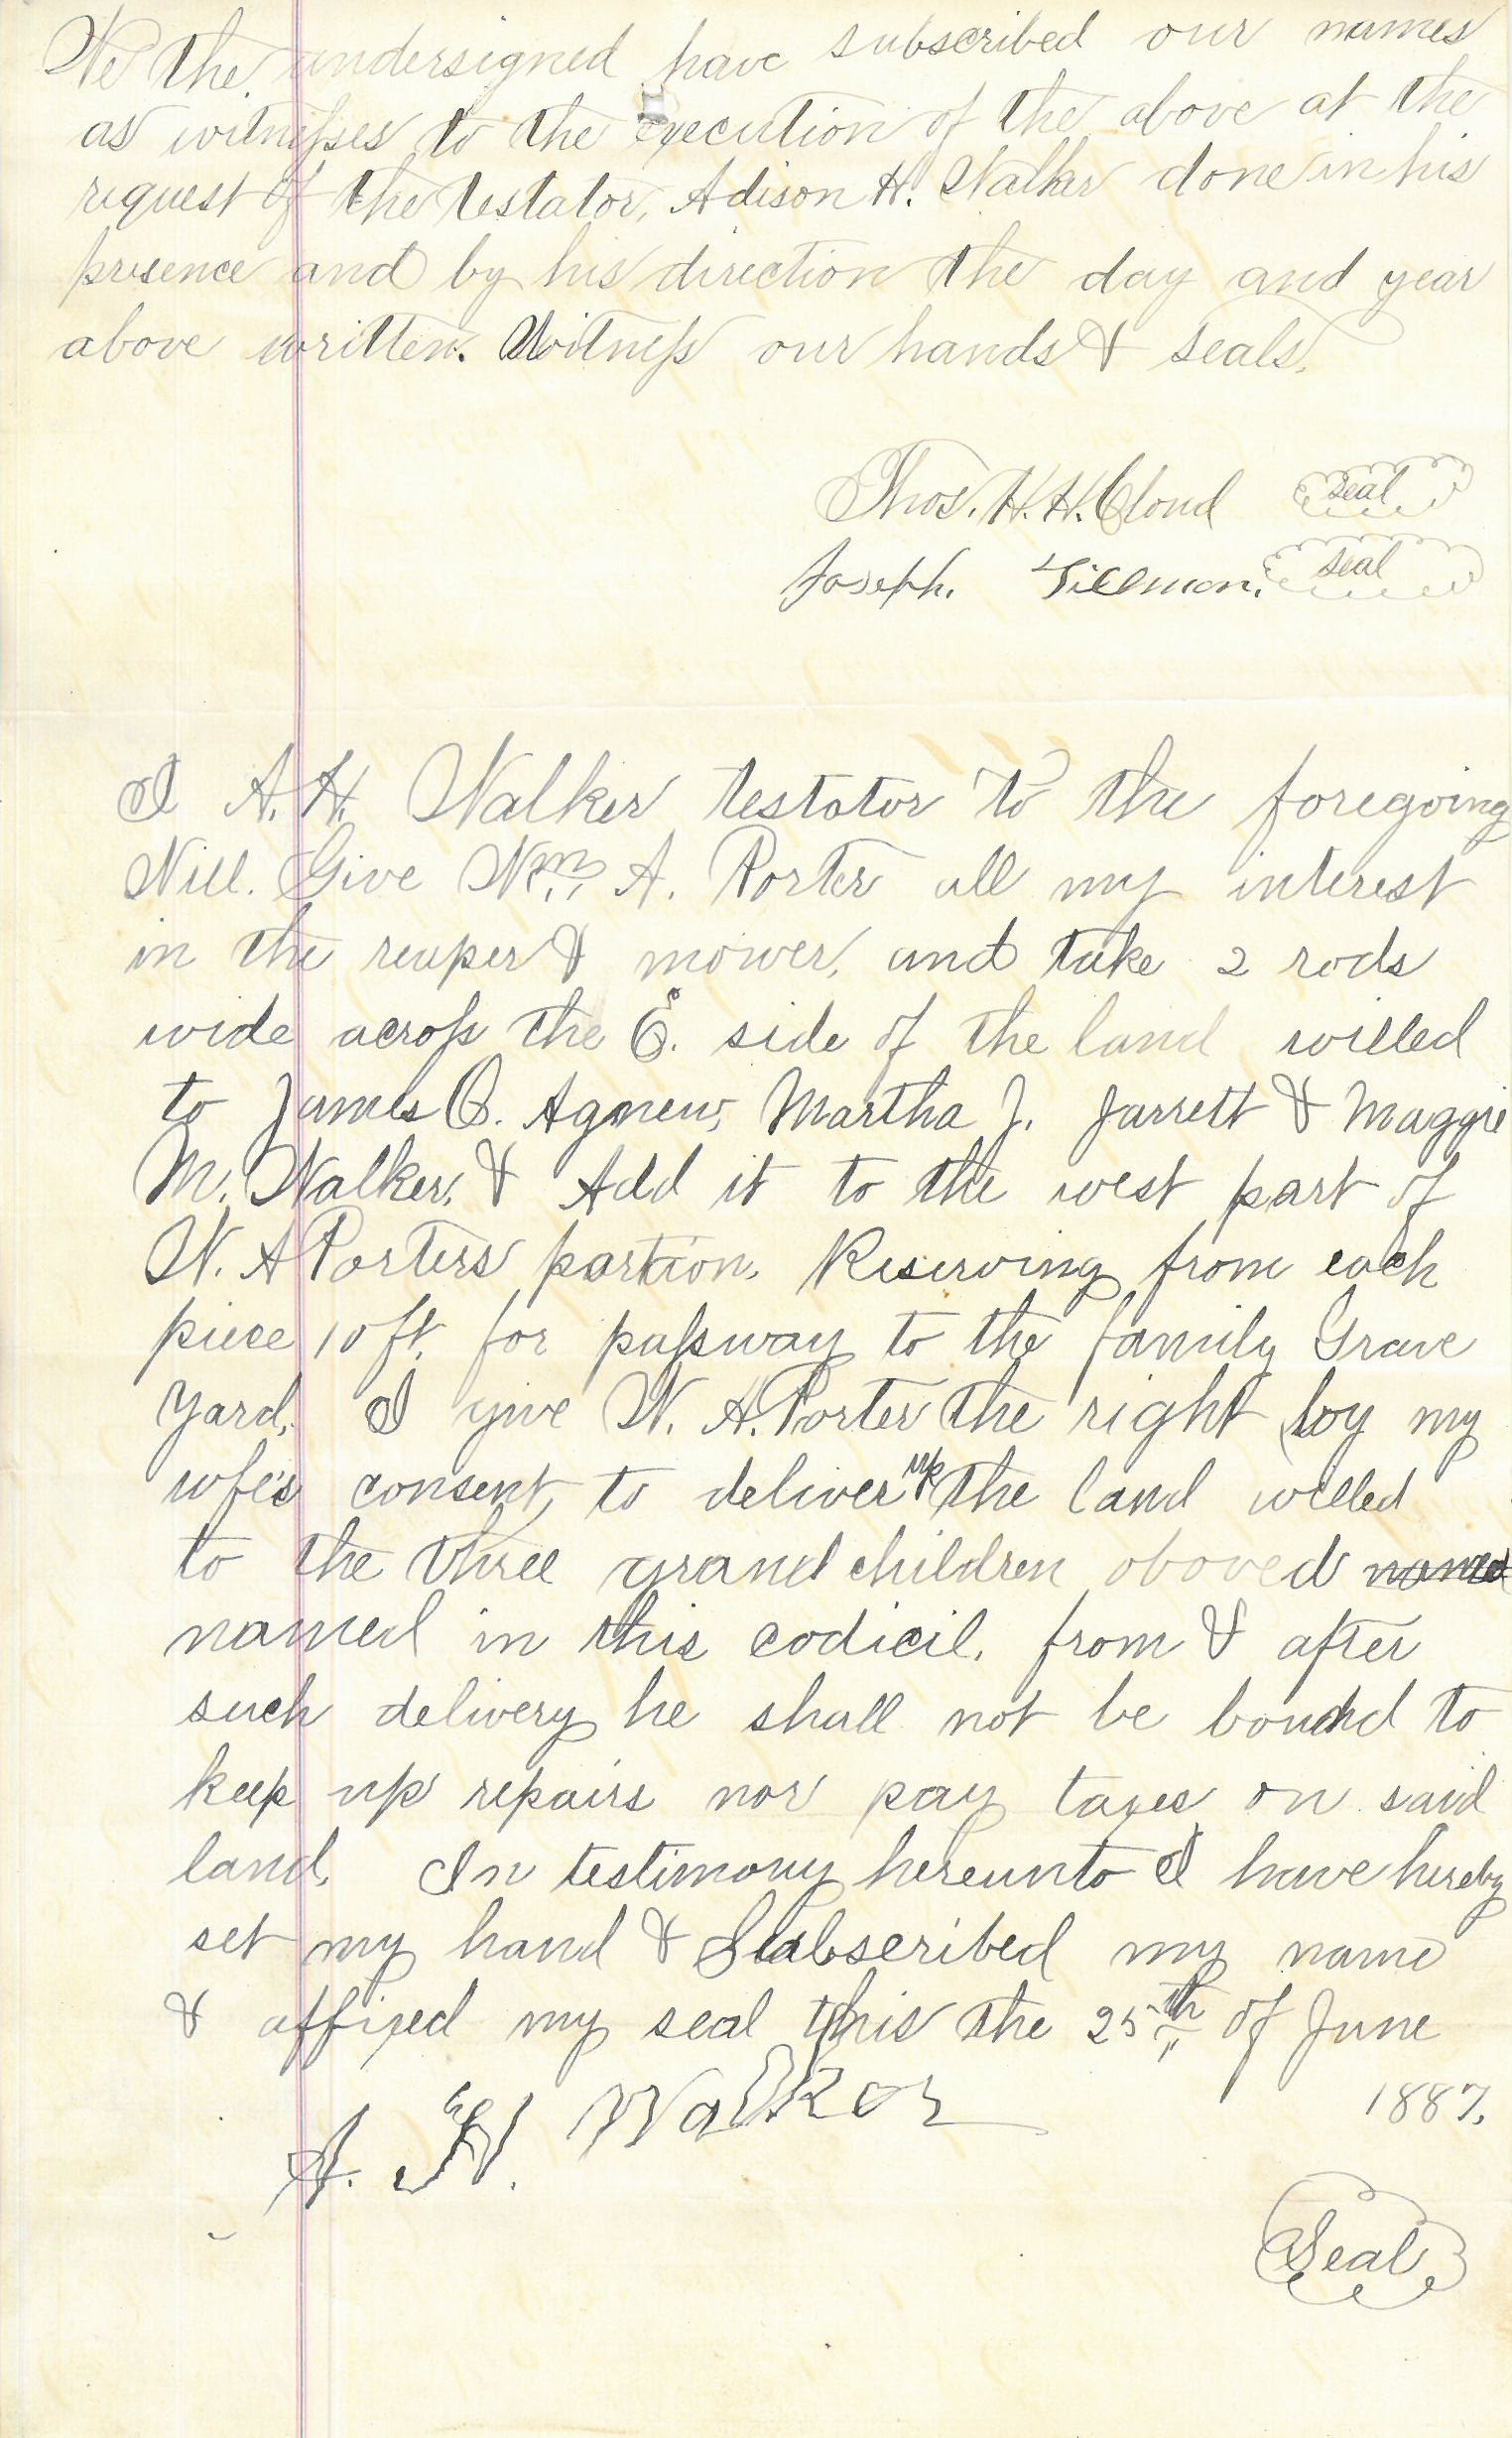 We the undersigned have subscribed our names
as witnesses to the execution of the above at the
request of the testator, Adison H. Walker done in his
presence and by his direction the day and year
above written. Witness our hands & seals.
Thos. H. H. Cloud seal
Joseph. Tillman. seal
I A. H. Walker testator to the foregoing
Will. Give Wm. A. Porter all my interest
in the reaper & mower, and take 2 rods
wide across the E. side of the land willed
to James O. Agnew, Martha J. Jarrett & Maggie
M. Walker, & Add it to the west part of
W. A Porters portion. Reserving from each
piece 10 ft. for passway to the family Grave
Yard. I give W. A. Porter the right by my
wfe's consent, to deliver up the land willed
to the three grand children oboved named
named in this codicil. from & after
such delivery he shall not be bound to
keep up repairs nor pay taxes on said
land. In testimony hereunto I have hereby
set my hand & Subscribed my name
& affixed my seal this the 25th of June
1887.
A. H. Walker
Seal